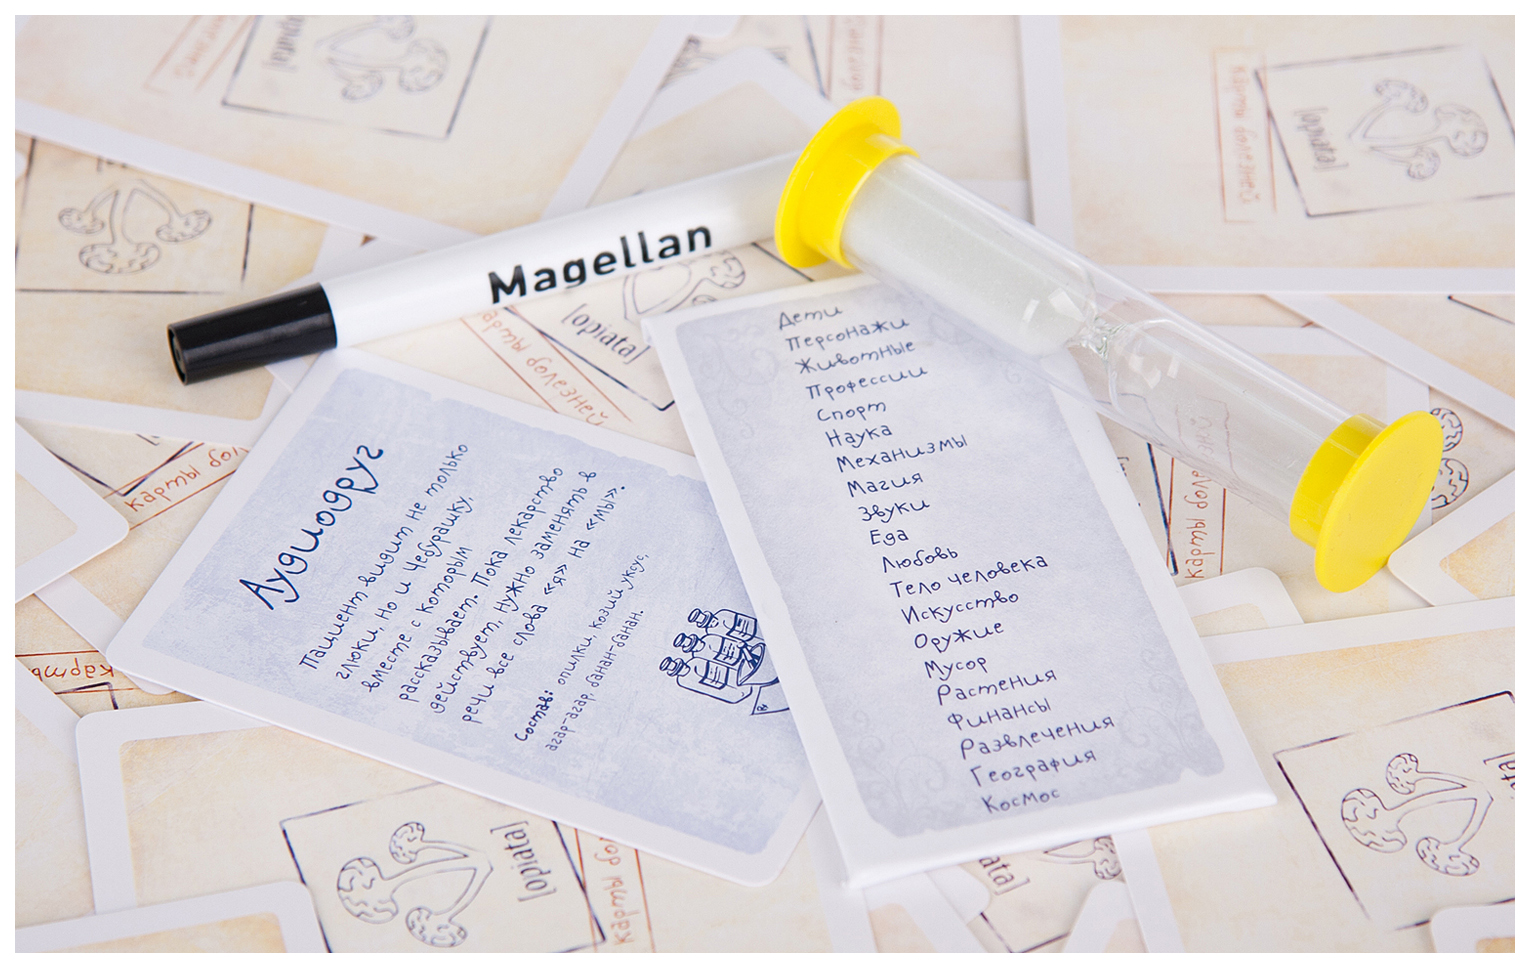 Magellan
Аудиодруг
Пациент видит не только
глюки, но и Чебурашку,
вместе с которым
рассказывает. Пока лекарство
действует, нужно заменять в
речи все слова «я» на «мы».
Состав: опилки, козий уксус,
агар-агар, банан-банан.
Дети
Персонажи
Животные
Профессии
Спорт
Наука
Механизмы
Магия
Звуки
Еда
Любовь
Тело человека
Искусство
Оружие
Мусор
Растения
Финансы
Развлечения
География
Космос
[opiata]
карты болезней
[opiata]
карты болезней
[opiata]
карты
[opiata]
[opiata]